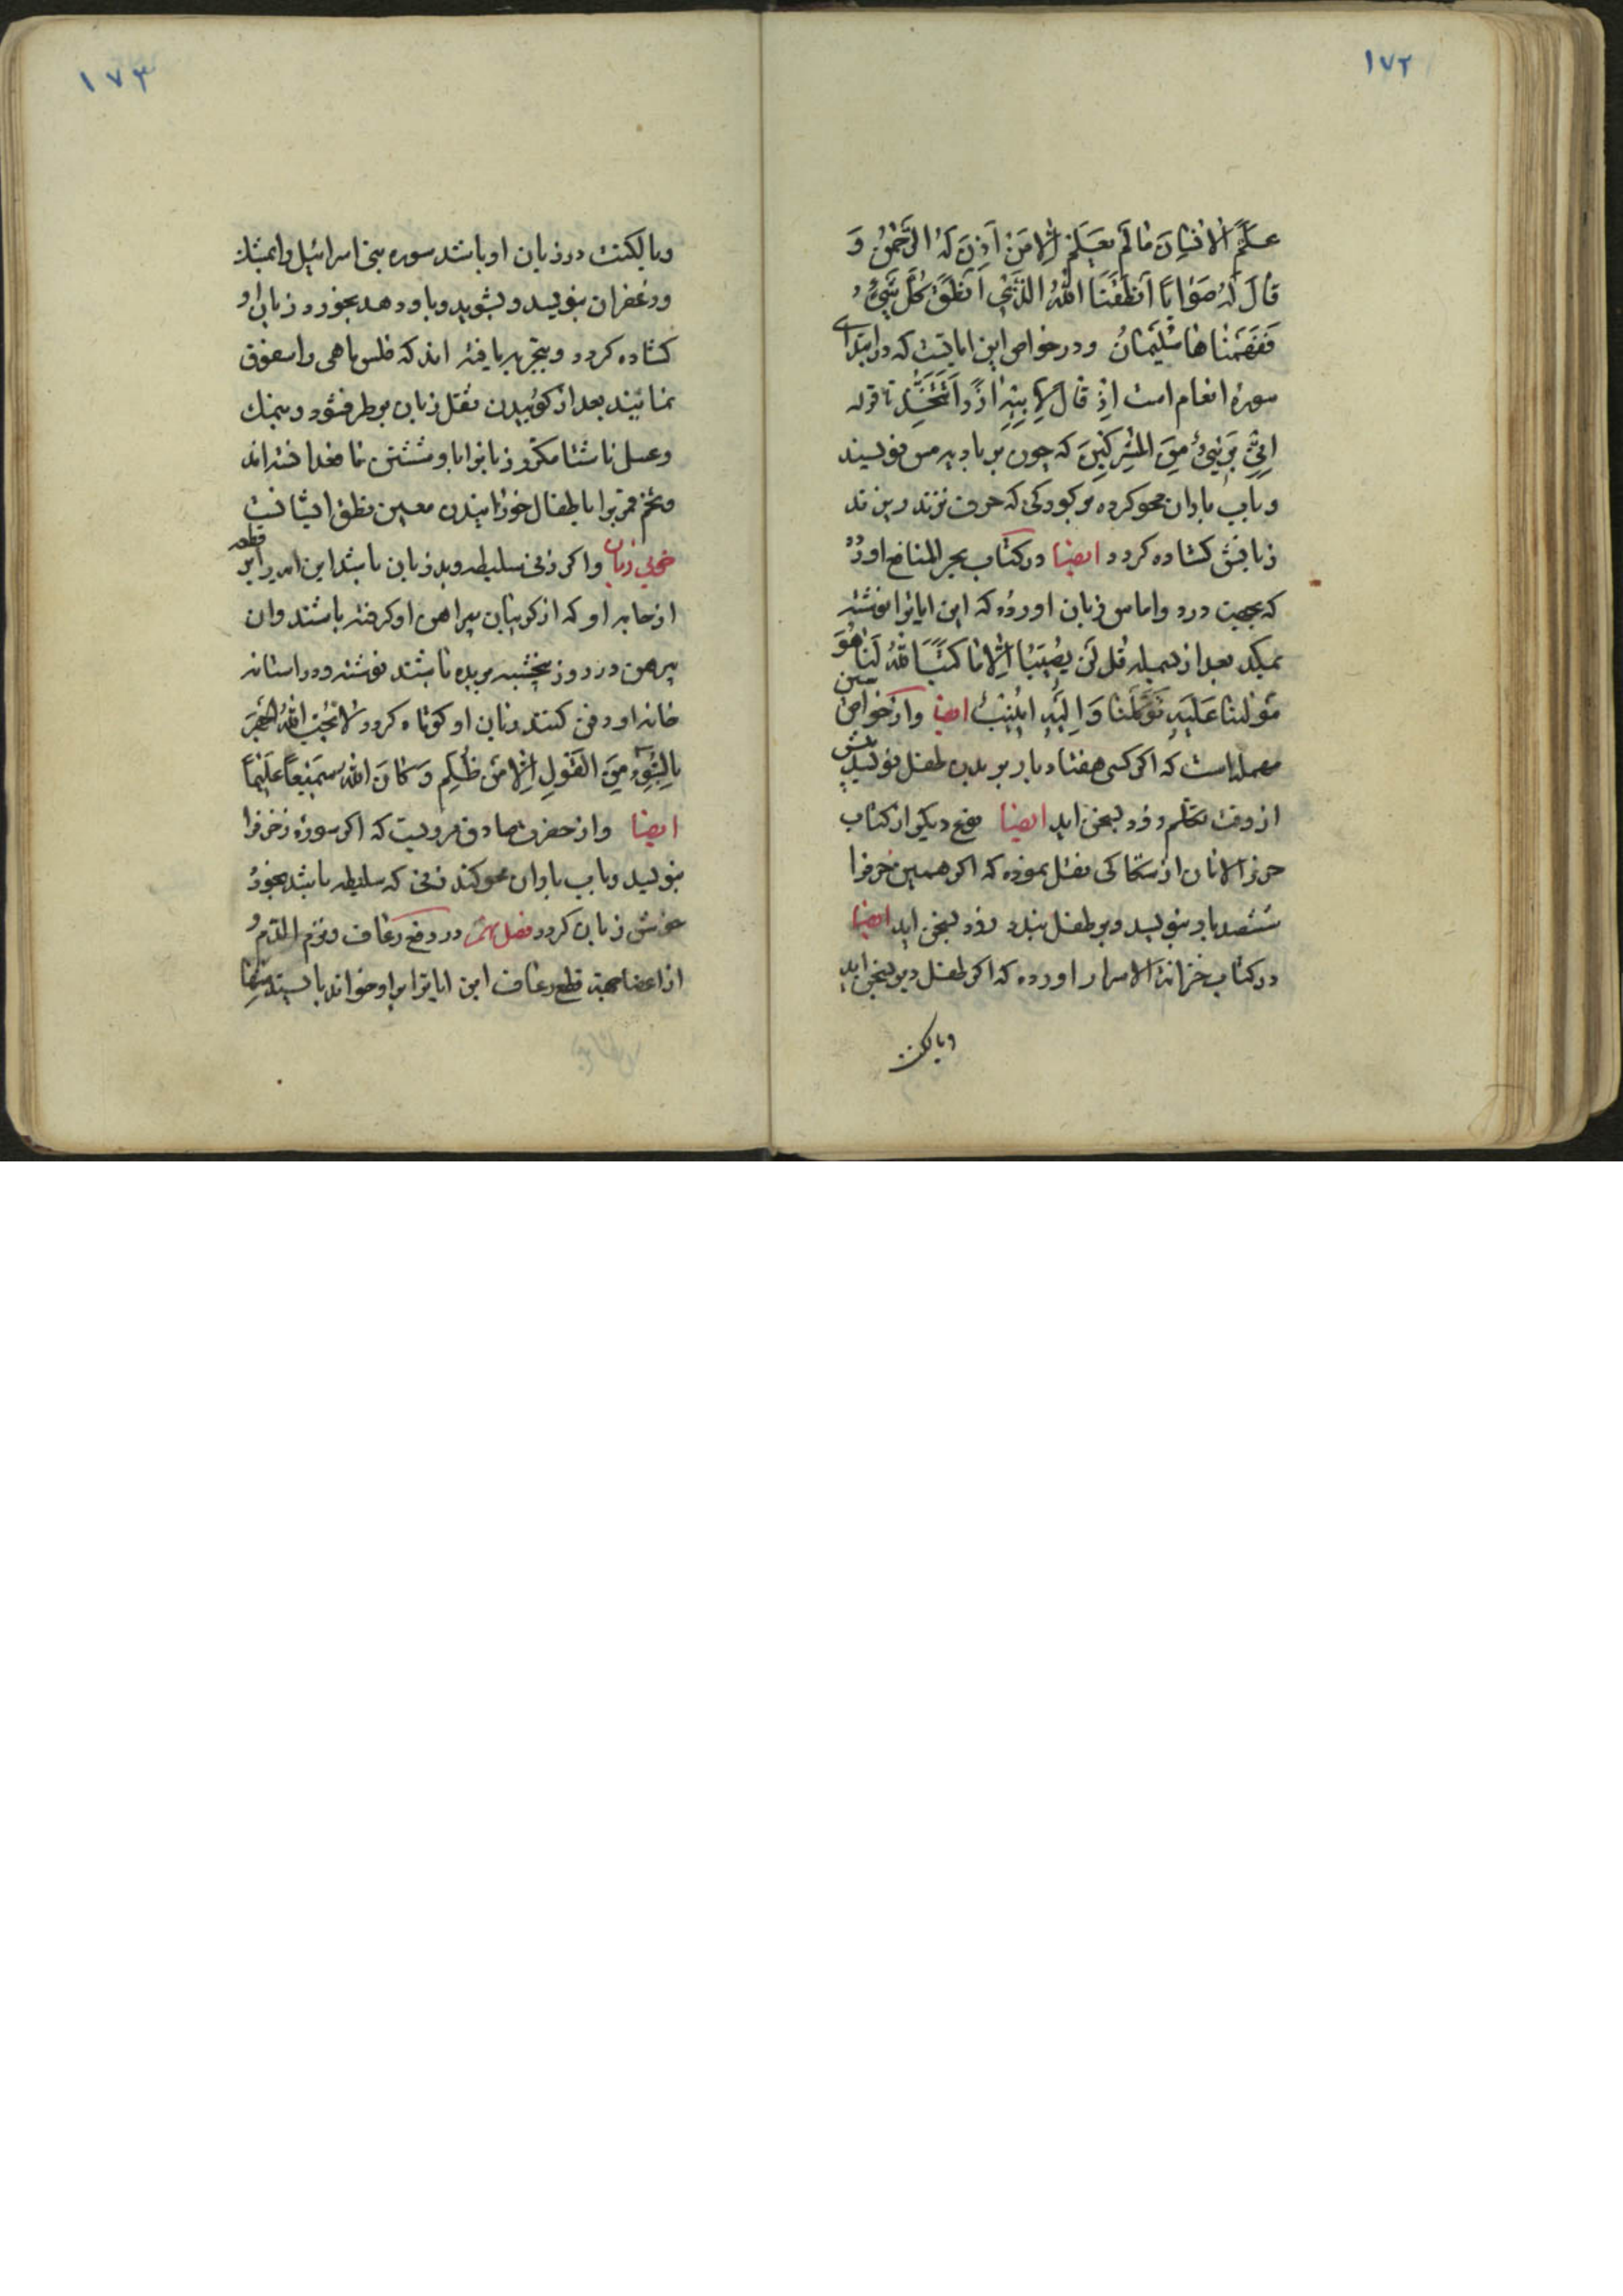 ١٧٢
عَلَّمَ الْاِنْسٰانَ مٰا لَمْ يَعْلَمْ اِلّٰا مَنْ اَذِنَ لَهُ الرَّحْمٰنُ وَ
قٰالَ لَهُ صَوٰابًا اَنْطَقَنَا اللّٰهُ الَّذِي اَنْطَقَ كُلَّ شَيْءٍ
فَفَهَّمْنٰاهٰا سُلَيْمٰانَ ودر خواص این ایاتیست که در ابتدای
سوره انعام است اِذْ قٰالَ لِاَبِيهِ اٰزَرَ اَتَتَّخِذُ تا قوله
اِنِّي بَرِيٓءٌ مِنَ الْمُشْرِكِينَ که چون بر بادیه مس نویسند
وباب باران محو کرده بر کودکی که حرف نزند ریزند
زبانش کشاده کردد ایضا در کتاب بحر المنافع اورده
که بجهت درد واماس زبان اورده که این ایاترا نوشته
بمکد بعد از بسمله قُلْ لَنْ يُصِيبَنٰا اِلّٰا مٰا كَتَبَ اللّٰهُ لَنٰا هُوَ
مَوْلٰينٰا عَلَيْهِ تَوَكَّلْنٰا وَاِلَيْهِ اُنِيبُ ایضا واز خواص
معمله است که اکر کسی هفتاد بار بر بدن طفل نویسد پیش
از وقت تکلم زود بسخن اید ایضا نوع دیکر از کتاب
حرز الامان از سکاکی نقل نموده که اکر همین حرفرا
ششصد بار بنویسد وبر طفل بندد زود بسخن اید ایضا
در کتاب خزانة الاسرار اورده که اکر طفل دیر بسخن اید
ویا لکنت
١٧٣
ویا لکنت در زبان او باشد سوره بنی اسرائیل را بمشک
وزعفران بنویسد وبشوید وباو دهد بخورد زبان او
کشاده کردد وبتجربه یافته اند که فلس ماهی را سفوف
نمائیند بعد از کوبیدن ثقل زبان برطرف شود ونمک
وعسل ناشتا مکرر زبانرا باو شستن نافع دانسته اند
وتخم قمریرا باطفال خورانیدن معین نطق ایشانست
خوبی زبان واکر زنی سلیطه وبد زبان باشد این ایه را بر قطعه
از جامه او که از کریبان پیراهن او کرفته باشند وان
پیرهن در روز پنجشنبه بریده باشند نوشته ودر استانه
خانه او دفن کنند زبان او کوتاه کردد لٰا يُحِبُّ اللّٰهُ الْجَهْرَ
بِالسُّوءِ مِنَ الْقَوْلِ اِلّٰا مَنْ ظُلِمَ وَ كٰانَ اللّٰهُ سَمِيعًا عَلِيمًا
ایضا واز حضرت صادق مرویست که اکر سوره زخرفرا
بنویسد وباب باران محو کند زنی که سلیطه باشد بخورد
خوش زبان کردد فصل در دفع رعاف ونزم الدم
از اعضا بجهة قطع رعاف این ایاترا بر او خواند یا